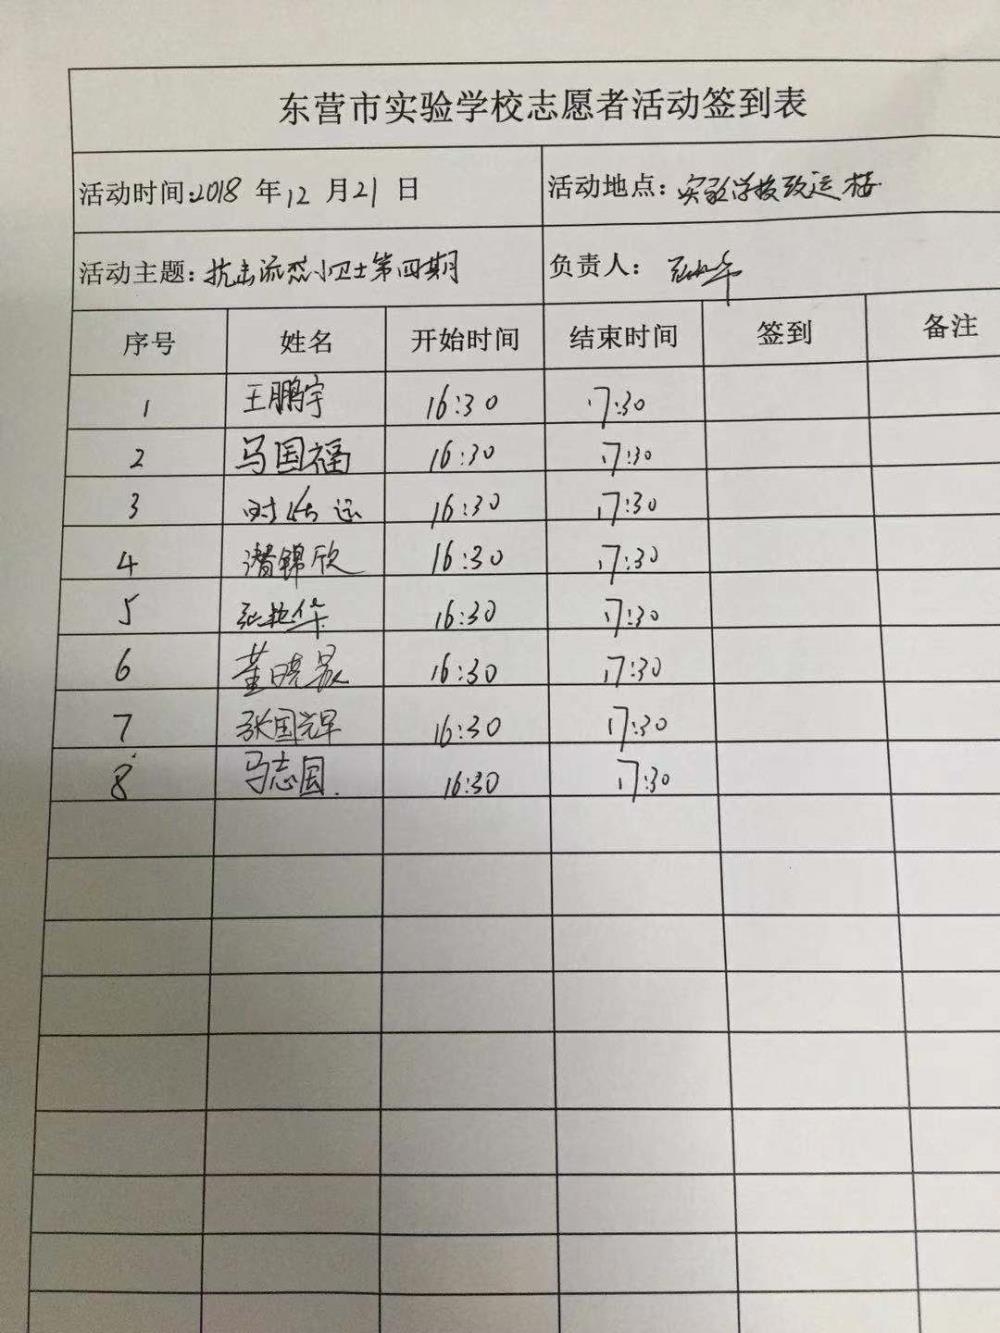 东营市实验学校志愿者活动签到表
活动时间:2018 年 12 月 21 日 活动地点: 实验学校致远楼
活动主题: 抗击流感小卫士第四期 负责人:
序号 姓名 开始时间 结束时间 签到 备注
1 王鹏宇 16:30 17:30
2 马国福 16:30 17:30
3 16:30 17:30
4 潘锦欣 16:30 17:30
5 张艳华 16:30 17:30
6 董晓 16:30 17:30
7 张国辉 16:30 17:30
8 马志国. 16:30 17:30